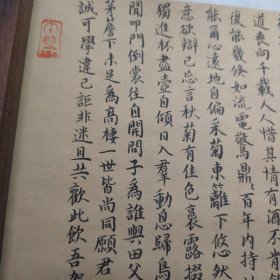 道喪向千載人人惜其情有酒不
復能幾倏如流電驚鼎鼎百年内持
能爾心遠地自偏采菊東籬下悠然
意欲辯已忘言秋菊有佳色裛露掇
獨進杯盡壺自傾日入羣動息歸鳥
聞叩門倒裳往自開問子為誰與田父
茅簷下未足為高棲一世皆尚同願君
誠可學違己詎非迷且共歡此飲吾駕